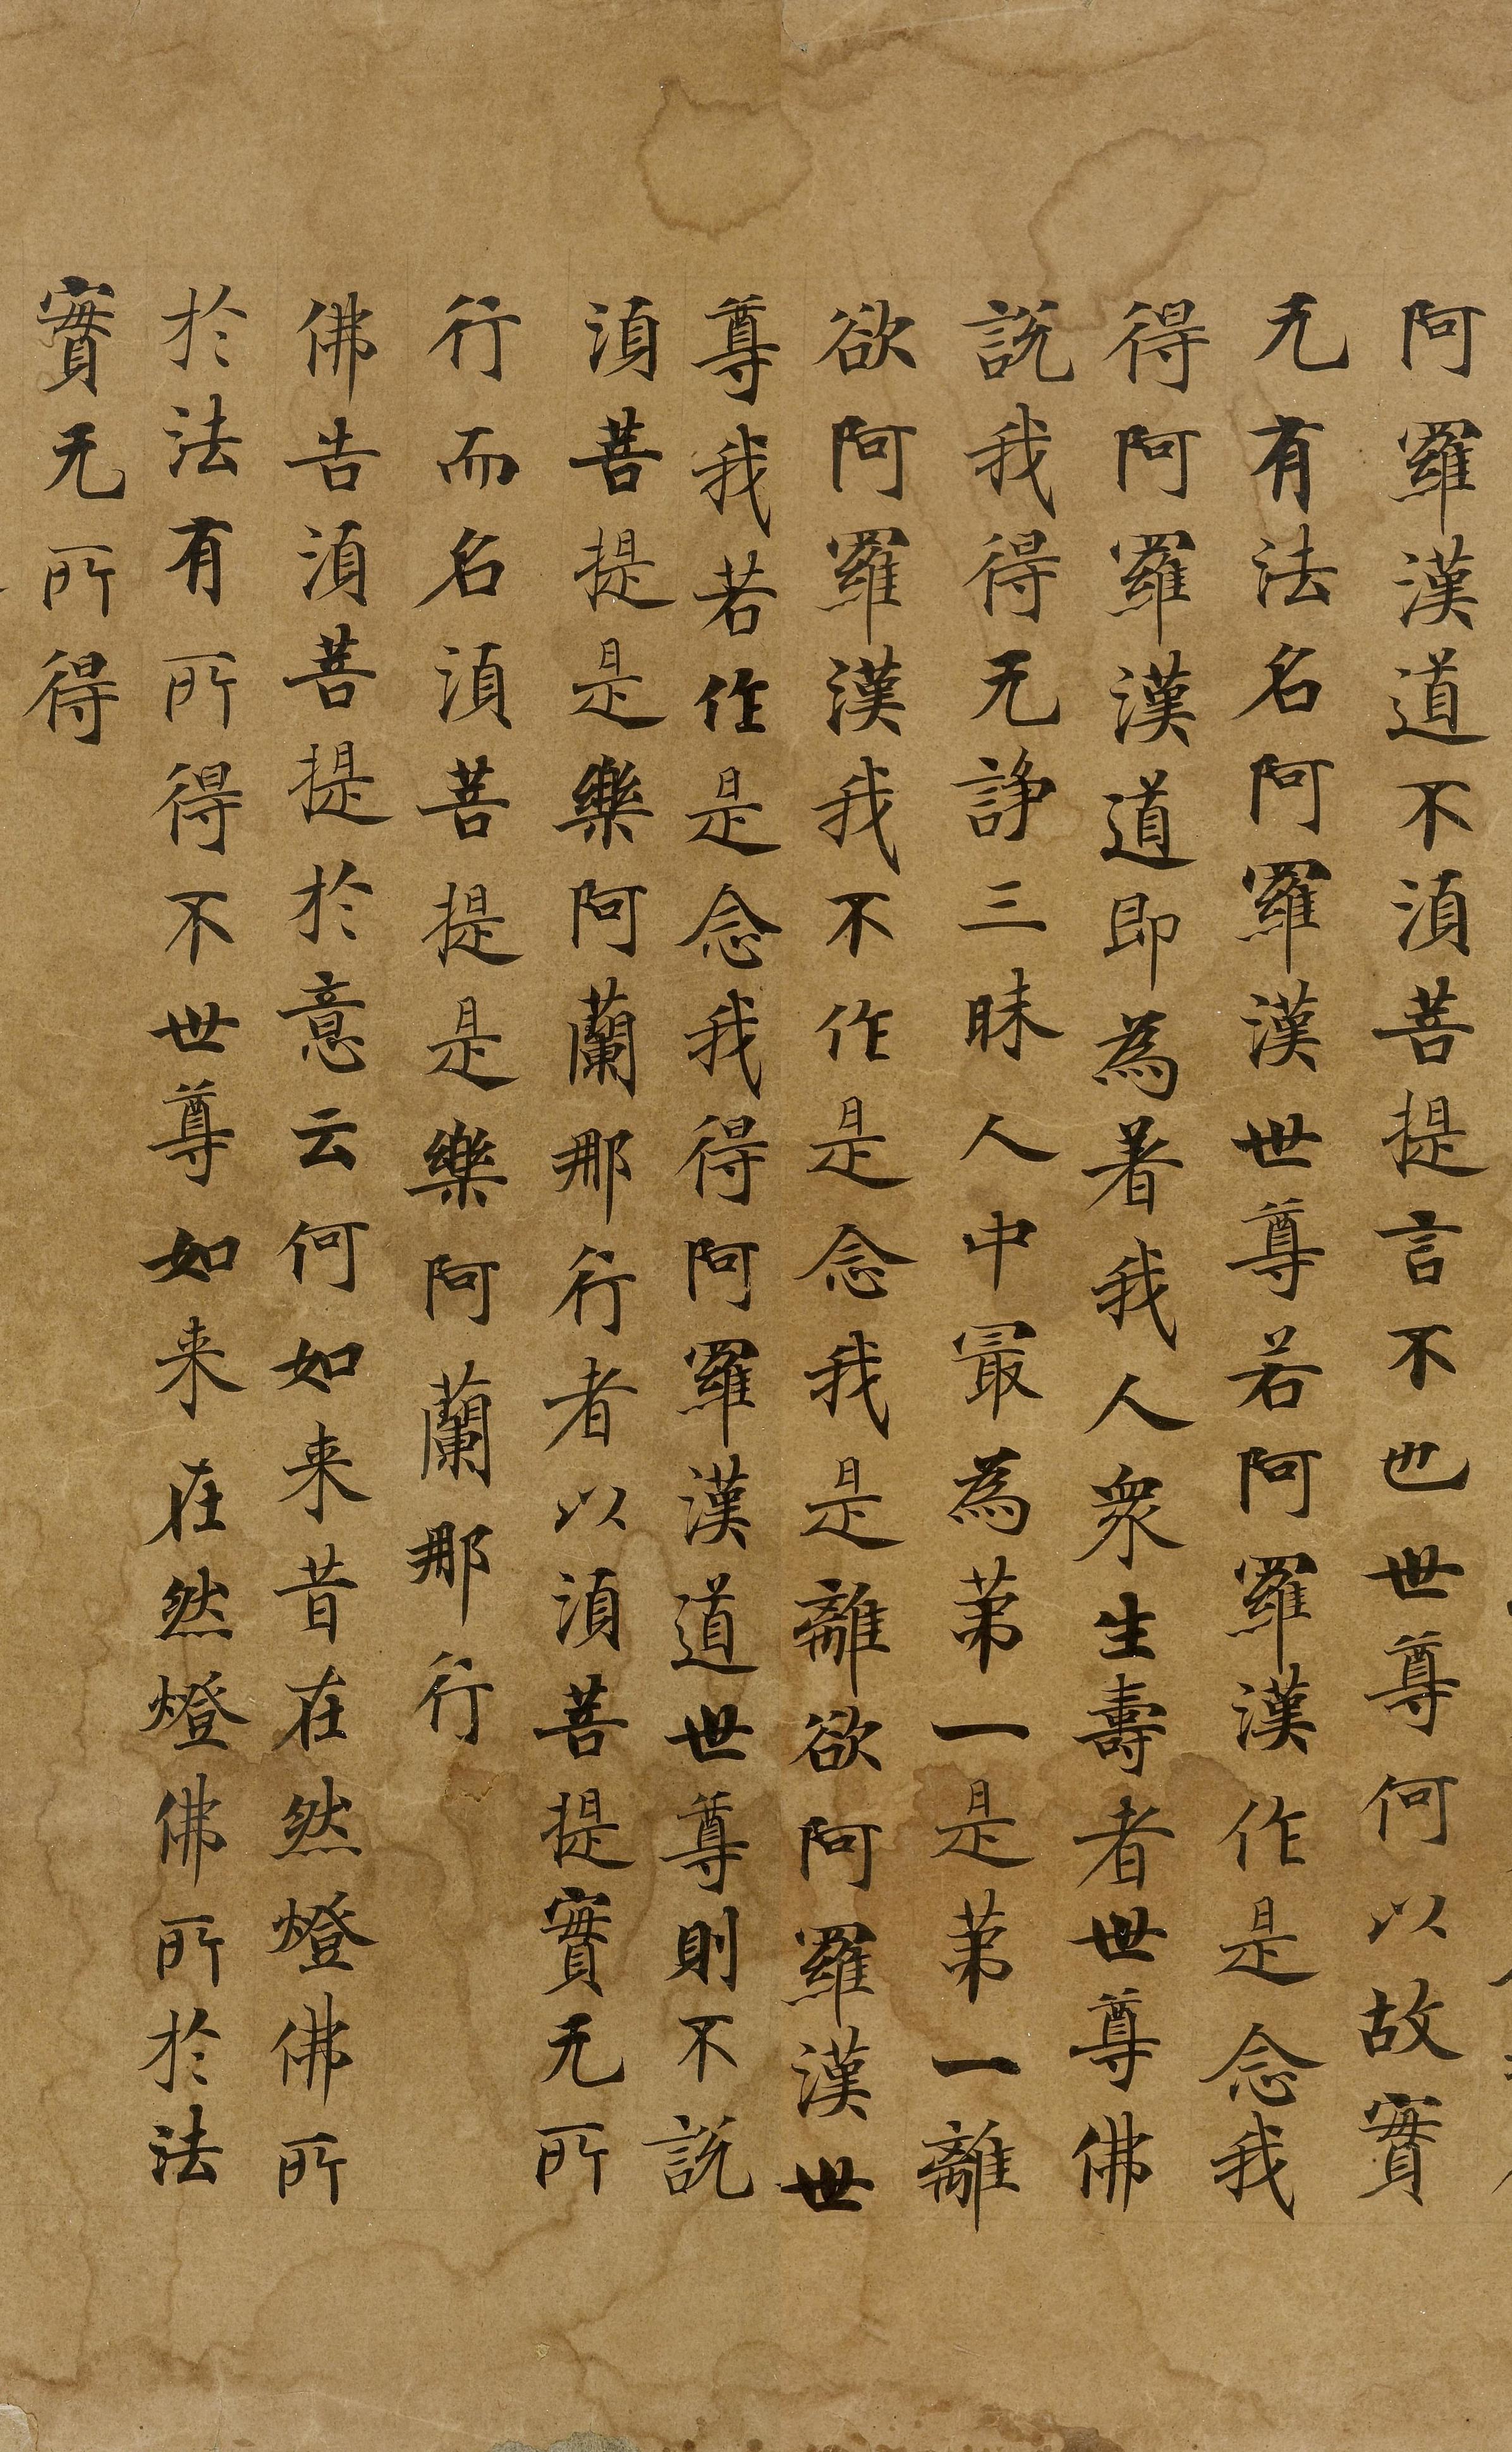 阿羅漢道不湏菩提言不也世尊何以故實
无有法名阿羅漢世尊若阿羅漢作是念我
得阿羅漢道即為著我人衆生壽者世尊佛
說我得无諍三昧人中冣為苐一是苐一離
欲阿羅漢我不作是念我是離欲阿羅漢世
尊我若作是念我得阿羅漢道世尊則不說
湏菩提是樂阿蘭那行者以湏菩提實无所
行而名湏菩提是樂阿蘭那行
佛告湏菩提於意云何如来昔在然燈佛所
於法有所得不世尊如来在然燈佛所於法
實无所得